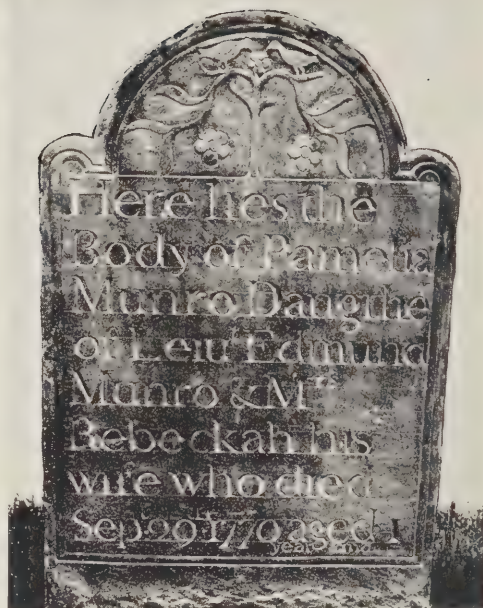 Here lies the
Body of Pamelia
Munro Daugthe
of Leiu^t Edmund
Munro & M^rs
Bebeckah his
wife who died
Sep 29 1770 aged 1
years